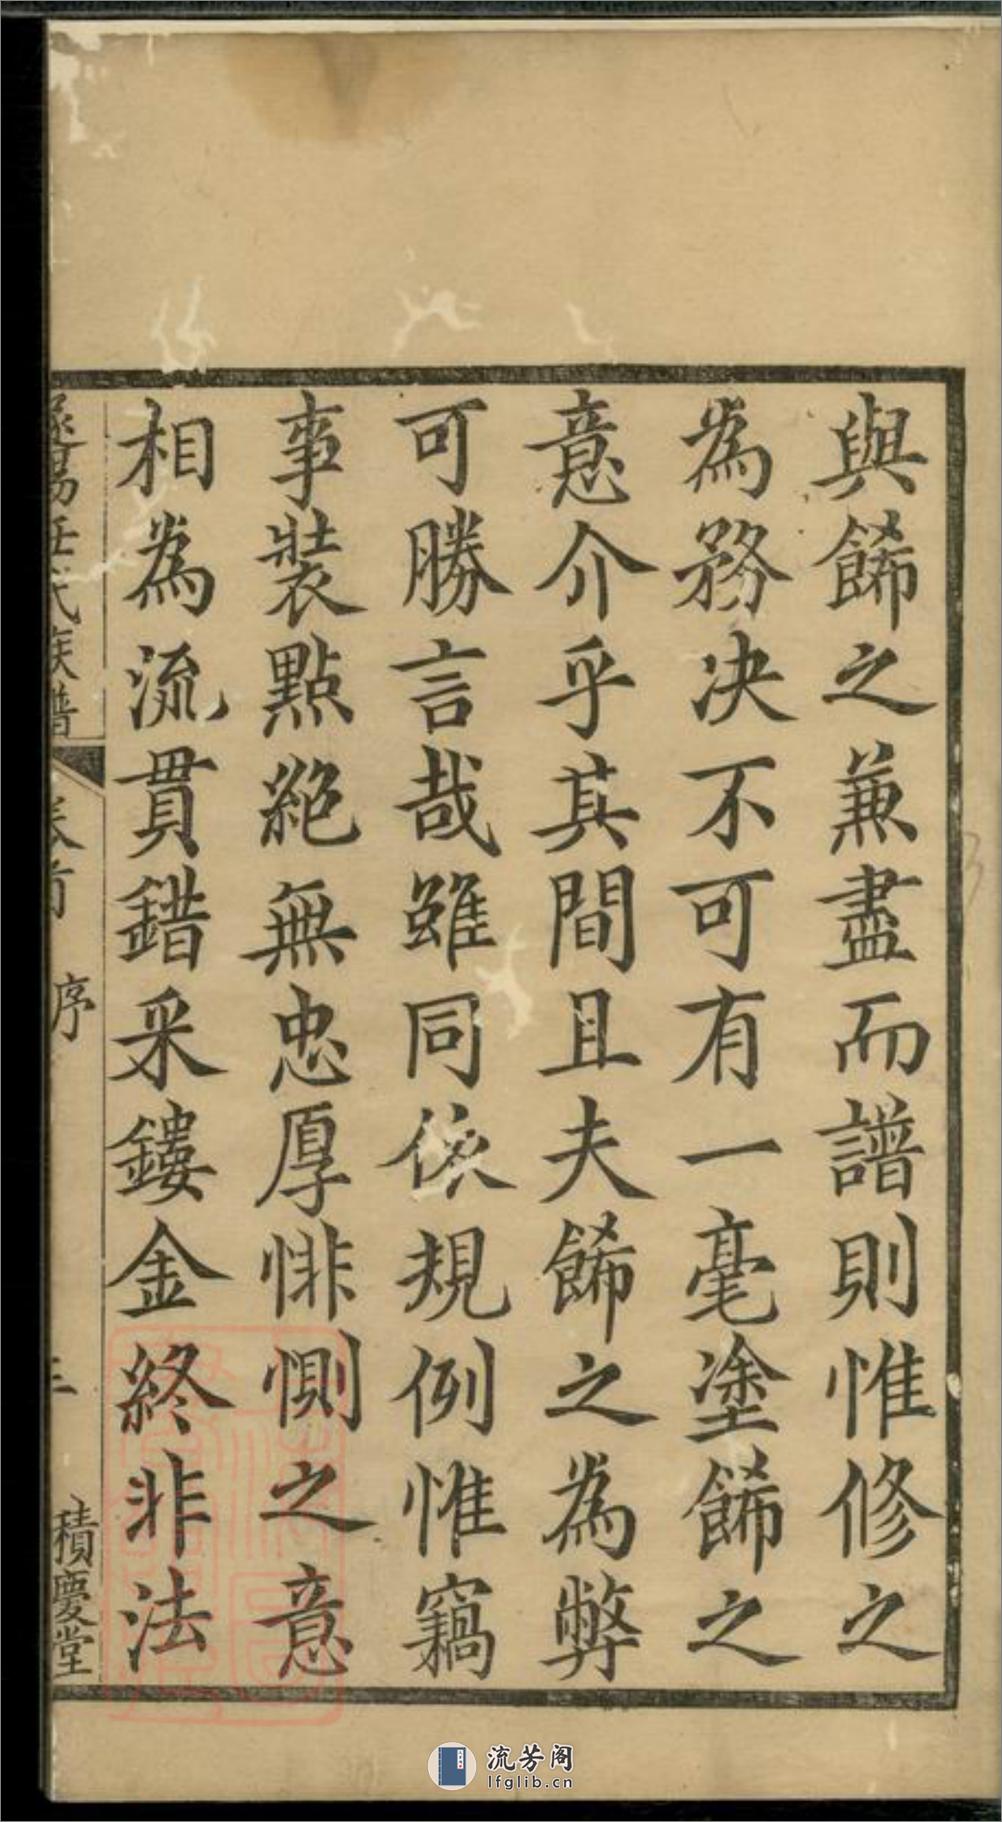 與餙之兼盡而譜則惟修之
為務决不可有一毫塗餙之
意介乎其間且夫餙之為弊
可勝言哉雖同依規例惟竊
事裝點絕無忠厚悱惻之意
相為流貫錯采鏤金終非法
任氏族譜
卷首
序
積慶堂
流芳阁
lfglib.cn